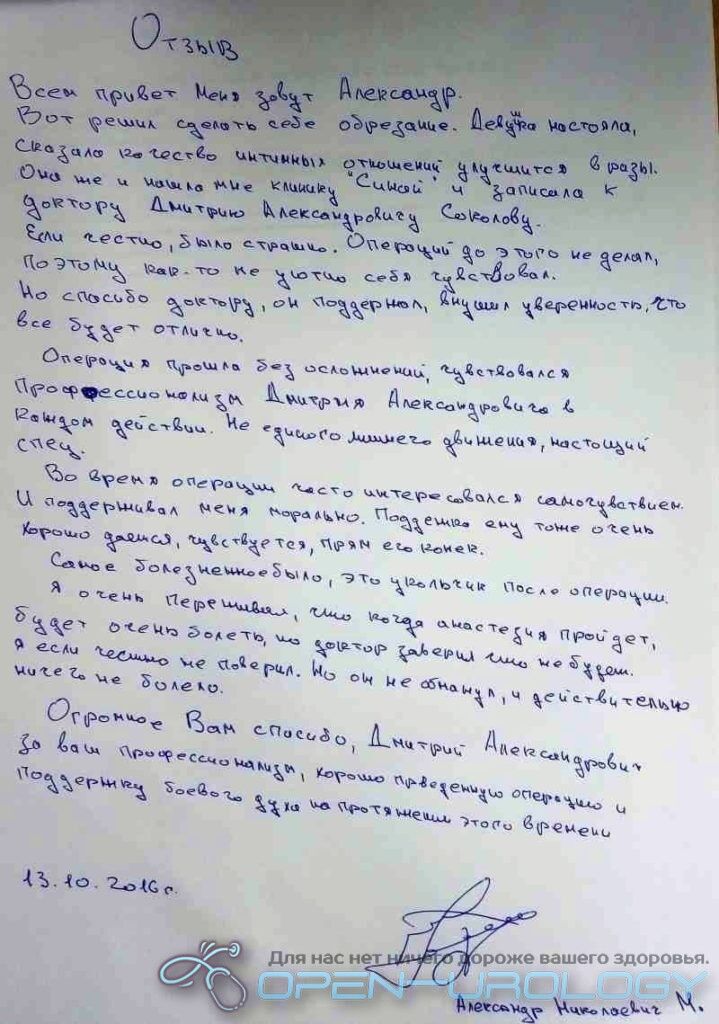 Отзыв
Всем привет Меня зовут Александр.
Вот решил сделать себе обрезание. Девушка настояла,
сказала качество интимных отношений улучшится в разы.
Она же и нашла мне клинику "Синай" и записала к
доктору Дмитрию Александровичу Соколову.
Если честно, было страшно. Операций до этого не делал,
поэтому как-то не уютно себя чувствовал.
Но спасибо доктору, он поддержал, внушил уверенность, что
все будет отлично.
Операция прошла без осложнений, чувствовался
Профессионализм Дмитрия Александровича в
каждом действии. Не единого лишнего движения, настоящий
спец.
Во время операции часто интересовался самочувствием.
И поддерживал меня морально. Поддежка ему тоже очень
хорошо даемся, чувствуется, прям его конек.
Самое болезненное было, это укольчик после операции.
Я очень переживал, что когда анастезия пройдет,
будет очень болеть, но доктор заверил что не будет.
Я если честно не поверил. Но он не обманул, и действительно
ничего не болело.
Огромное Вам спасибо, Дмитрий Александрович
за ваш профессионализм, хорошо проведенную операцию и
поддержку боевого духа на протяжении этого времени
13.10.2016г.
Для нас нет ничего дороже вашего здоровья.
OPEN-UROLOGY
Александр Николаевич М.